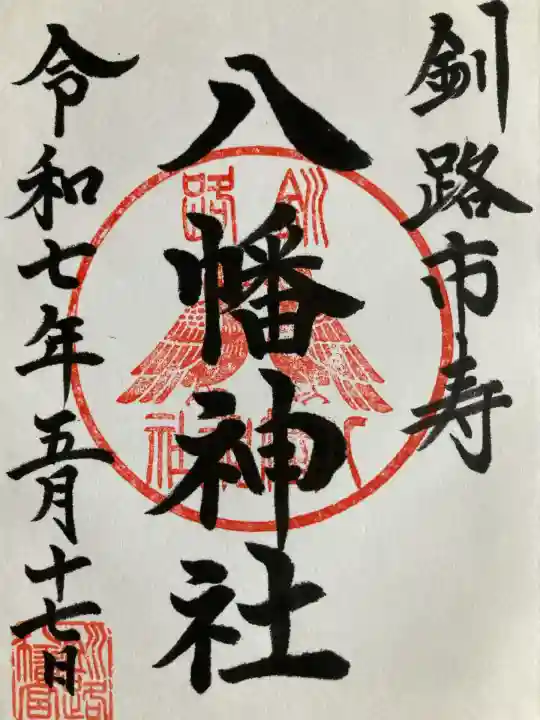 釧路市寿
八幡神社
令和七年五月十七日
釧路